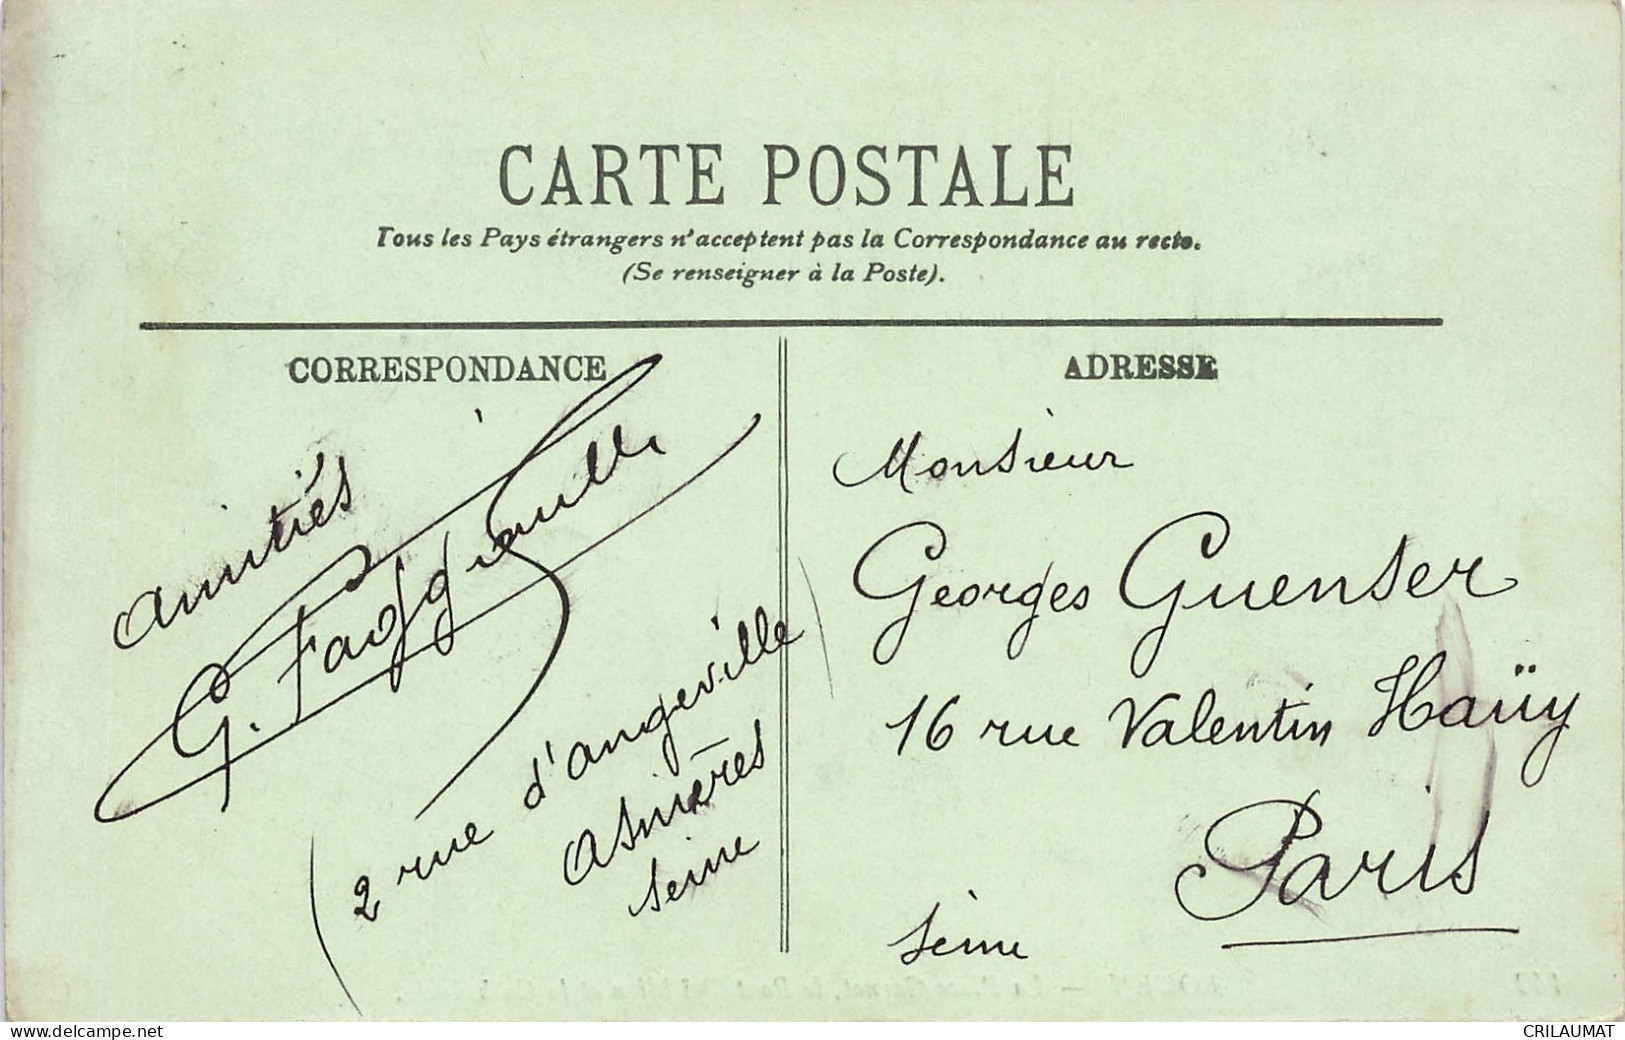 CARTE POSTALE
Tous les Pays étrangers n'acceptent pas la Correspondance au recto.
(Se renseigner à la Poste).
CORRESPONDANCE
amitiés
G.
2 rue d'angeville
Asnières
Seine
ADRESSE
Monsieur
Georges Guenser
16 rue Valentin Haüy
Paris
Seine
www.delcampe.net
CRILAUMAT